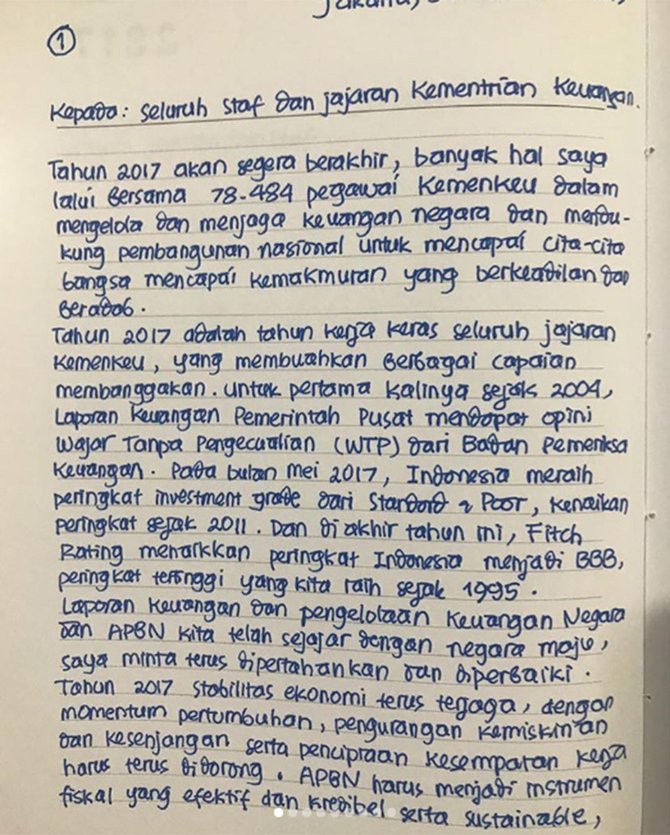 Jakarta,
1
Kepada: seluruh staf dan jajaran Kementrian Keuangan.
Tahun 2017 akan segera berakhir, banyak hal saya
lalui Bersama 78.484 pegawai Kemenkeu dalam
mengelola dan menjaga keuangan negara dan mendu-
kung pembangunan nasional untuk mencapai cita-cita
bangsa mencapai kemakmuran yang berkeadilan dan
Beradab.
Tahun 2017 adalah tahun kerja keras seluruh jajaran
Kemenkeu, yang membuahkan Berbagai capaian
membanggakan. untuk pertama kalinya sejak 2004,
Laporan Keuangan Pemerintah Pusat mendapat opini
Wajar Tanpa Pengecualian (WTP) dari Badan Pemeriksa
Keuangan. Pada bulan mei 2017, Indonesia meraih
peringkat investment grade dari Standard & Poor, kenaikan
peringkat sejak 2011. Dan di akhir tahun ini, Fitch
Rating menaikkan peringkat Indonesia menjadi BBB,
peringkat tertinggi yang kita raih sejak 1995.
Laporan keuangan dan pengelolaan Keuangan Negara
dan APBN kita telah sejajar dengan negara maju,
saya minta terus dipertahankan dan diperbaiki.
Tahun 2017 stabilitas ekonomi terus terjaga, dengan
momentum pertumbuhan, pengurangan kemiskinan
dan kesenjangan serta penciptaan kesempatan kerja
harus terus didorong. APBN harus menjadi instrumen
fiskal yang efektif dan kredibel serta sustainable,